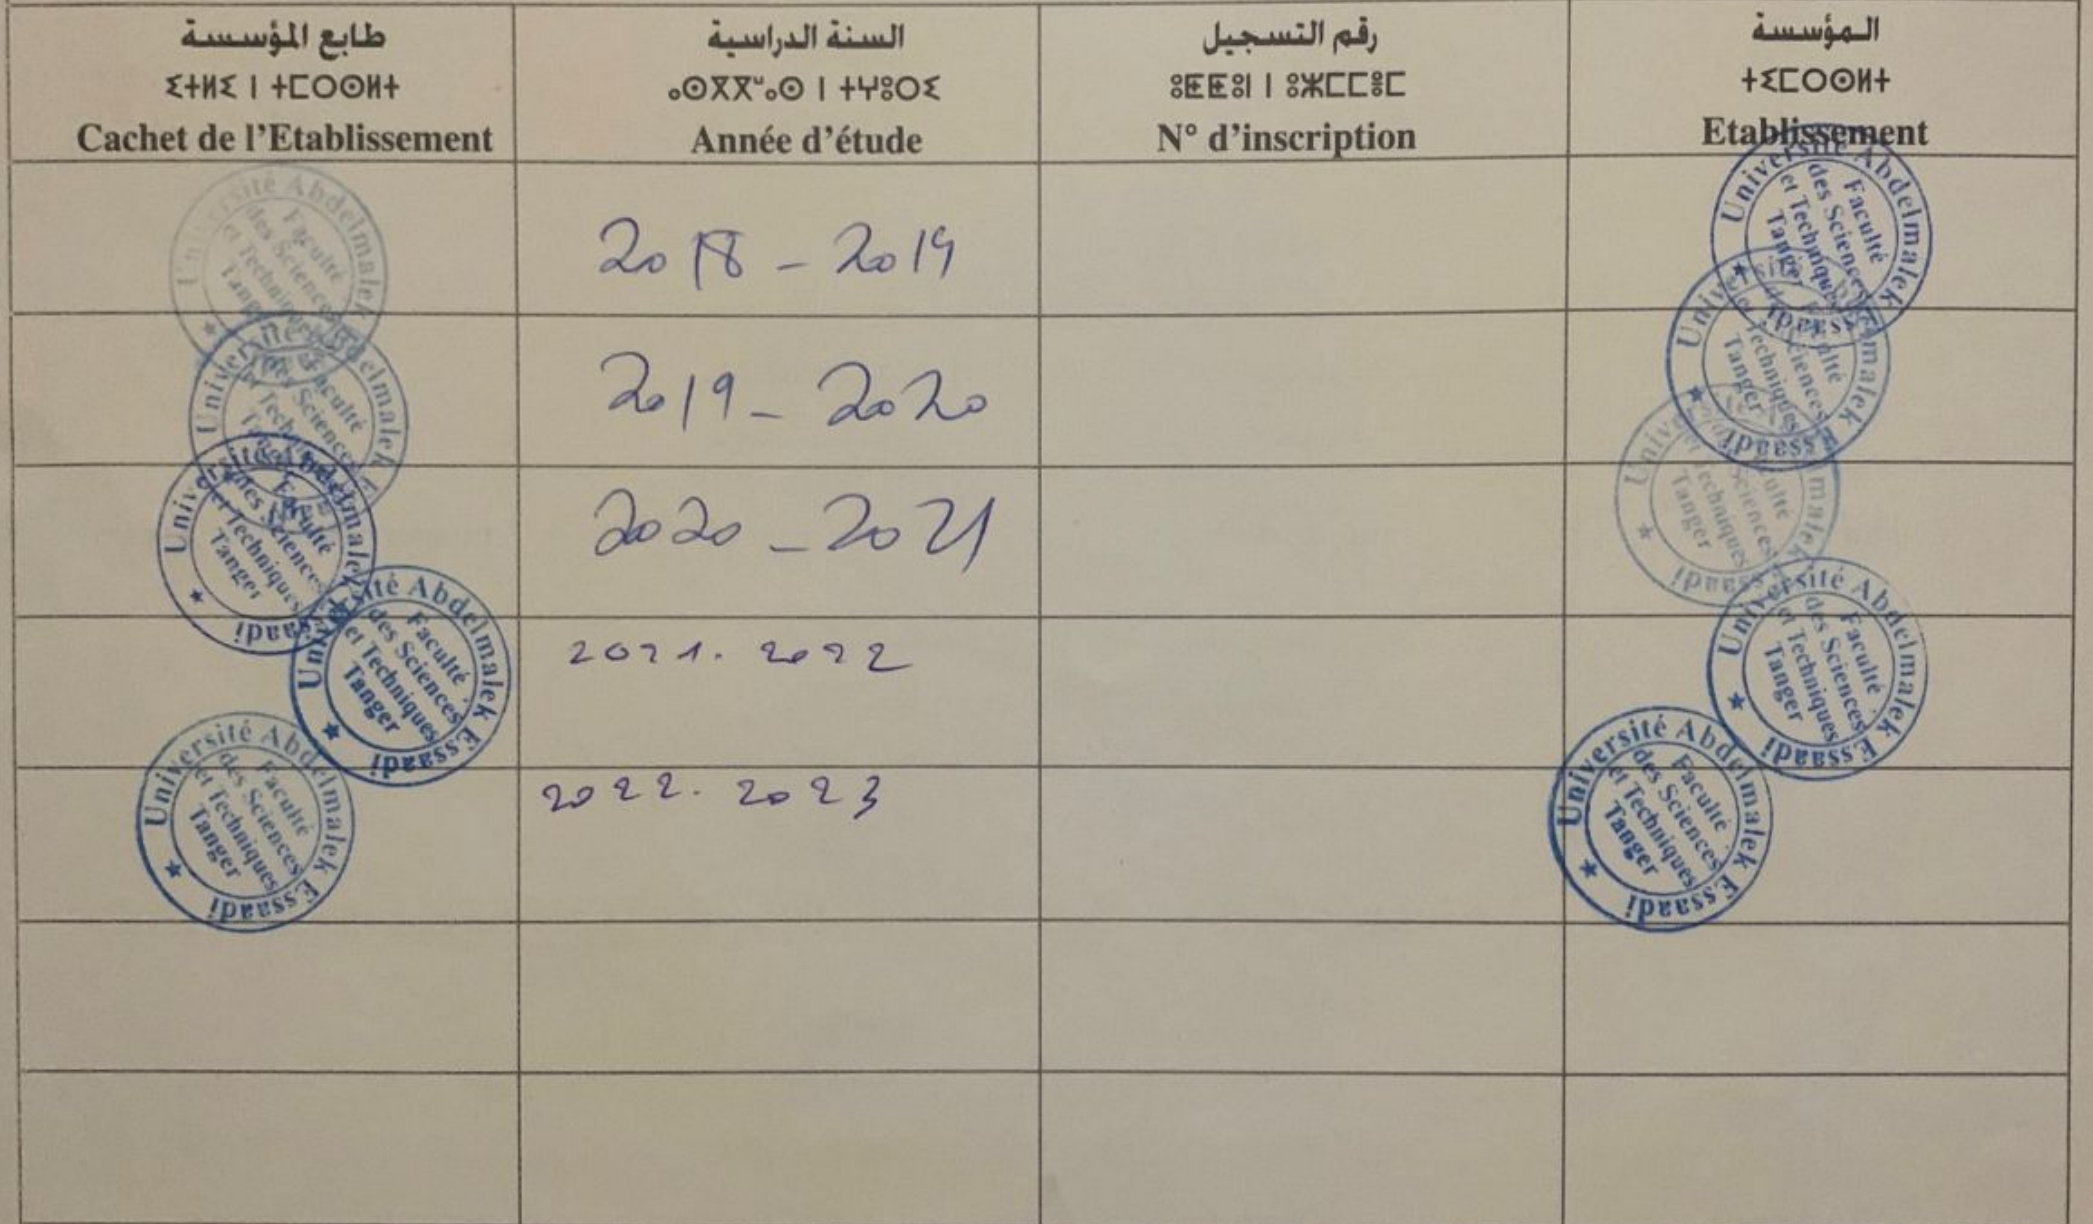 طابع المؤسسة
ⵉⵜⵍⵉ ⵏ ⵜⵎⵔⵙⵍⵜ
Cachet de l'Etablissement
السنة الدراسية
ⴰⵙⴳⴳⵯⴰⵙ ⵏ ⵜⵖⵓⵔⵉ
Année d'étude
رقم التسجيل
ⵓⵟⵟⵓⵏ ⵏ ⵓⵣⵎⵎⵓⵎ
N° d'inscription
المؤسسة
ⵜⵉⵎⵔⵙⵍⵜ
Etablissement
Université Abdelmalek Essaadi
Faculté
des Sciences
et Techniques
Tanger
2018 - 2019
Université Abdelmalek Essaadi
Faculté
des Sciences
et Techniques
Tanger
Université Abdelmalek
Faculté
des Sciences
2019 - 2020
Université Abdelmalek Essaadi
Faculté
Sciences
Techniques
Tanger
Université Abdelmalek Essaadi
Faculté
des Sciences
et Techniques
Tanger
2020 - 2021
Essaadi
Sciences
Techniques
Tanger
Université Abdelmalek Essaadi
Faculté
des Sciences
et Techniques
Tanger
2021. 2022
Université Abdelmalek Essaadi
Faculté
des Sciences
et Techniques
Tanger
Université Abdelmalek Essaadi
Faculté
des Sciences
et Techniques
Tanger
2022. 2023
Université Abdelmalek Essaadi
Faculté
des Sciences
et Techniques
Tanger